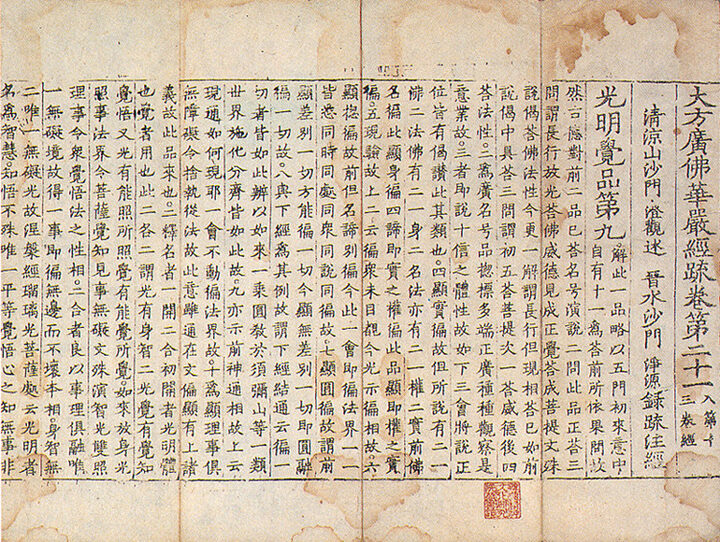 大方廣佛華嚴經疏卷第二十一 入第十三卷經
清涼山沙門 澄觀述 晉水沙門 淨源錄疏注經
光明覺品第九 解此一品略以五門初來意中
自有十一為荅前所依果問故
然古德對前二品已荅名号演說二問此品正荅三
問謂長行放光荅佛威德見成正覺荅成菩提文殊
說偈荅佛法性今更一解謂長行但現相荅已如前
說偈中具荅三問謂初五荅菩提次一荅威德後四
荅法性。二為廣名号品揔標多端正廣種種觀察是
意業故。三者即說十信之體性故如下三會將說正
位皆有偈讚此其類也。四顯實徧故但所說有二一
佛二法佛有二一身二名法亦有二一權二實前佛
名徧此顯身徧四諦即實之權徧此品顯即權之實
徧。五現驗故上二云徧衆未目覩今光示徧相故。六
顯揔徧故前但名諦別徧今此一會即徧法界一一
皆悉同時同處同衆同說同徧故。七顯圓徧故謂前
顯差別一切方能徧一切今顯無差別一切即圓融
徧一切故。八與下經為其例故謂下經結通云徧一
切者皆如此辨以如來一乗圓教於須彌山等一類
世界施化分齊皆如此故。九亦示前神通相故上云
現通如何現耶一會不動徧法界故。十為顯理事俱
無障礙令捨執從法故此意雖通在文偏顯有上諸
義故此品來也。二釋名者一開二合初開者光明體
也覺者用也此二各二謂光有身智二光覺有覺知
覺悟又光有能照所照覺有能覺所覺。如來放身光
照事法界令菩薩覺知見事無礙文殊演智光雙照
理事令衆覺悟法之性相。二合者良以事理俱融唯
一無礙境故得一事即徧無邊而不壞本相身智無
二唯一無礙光故涅槃經瑠璃光菩薩處云光明者
名為智慧。知悟不殊唯一平等覺悟心之知無事非